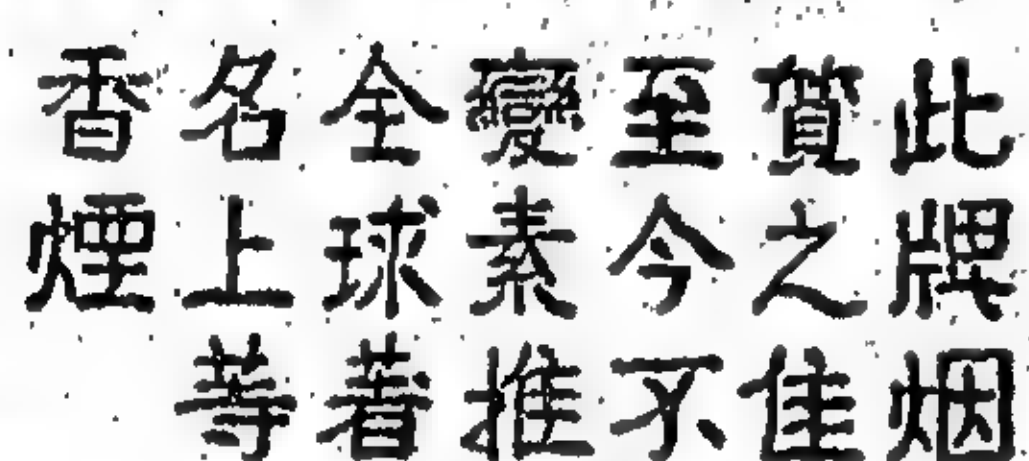 此牌烟
質之佳
至今不
變素推
全球著
名上等
香煙